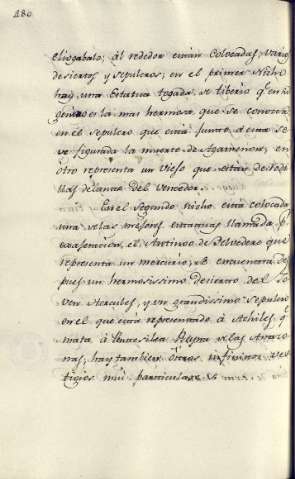 280
Eliogabalo; al rededor estan Colocadas, vario
desiertos y sepulcros; en el primer Nicho
hay una Estatua togada, se tiberio q̃ en su
genero es la mas hermosa, que se conoce
en el sepulcro que está Junto, a esta se
ve figurada la muerte de Agamenon, en
otro representa un viejo que está de rodi
llas delante del Vencedor.
En el segundo nicho está colocada
una de las mejores estatuas llamada p.
el Antinoo de Belvedere que
representa un mercurio, se encuentra des
pues un hermosissimo del Jo
ven Hercules, y un grandissimo sepulcro
en el que está representado à Achiles q̃
mata à Pentesilea Reyna de las Amazo
nas, hay tambien otros infinitos ves
tigios mui particulares